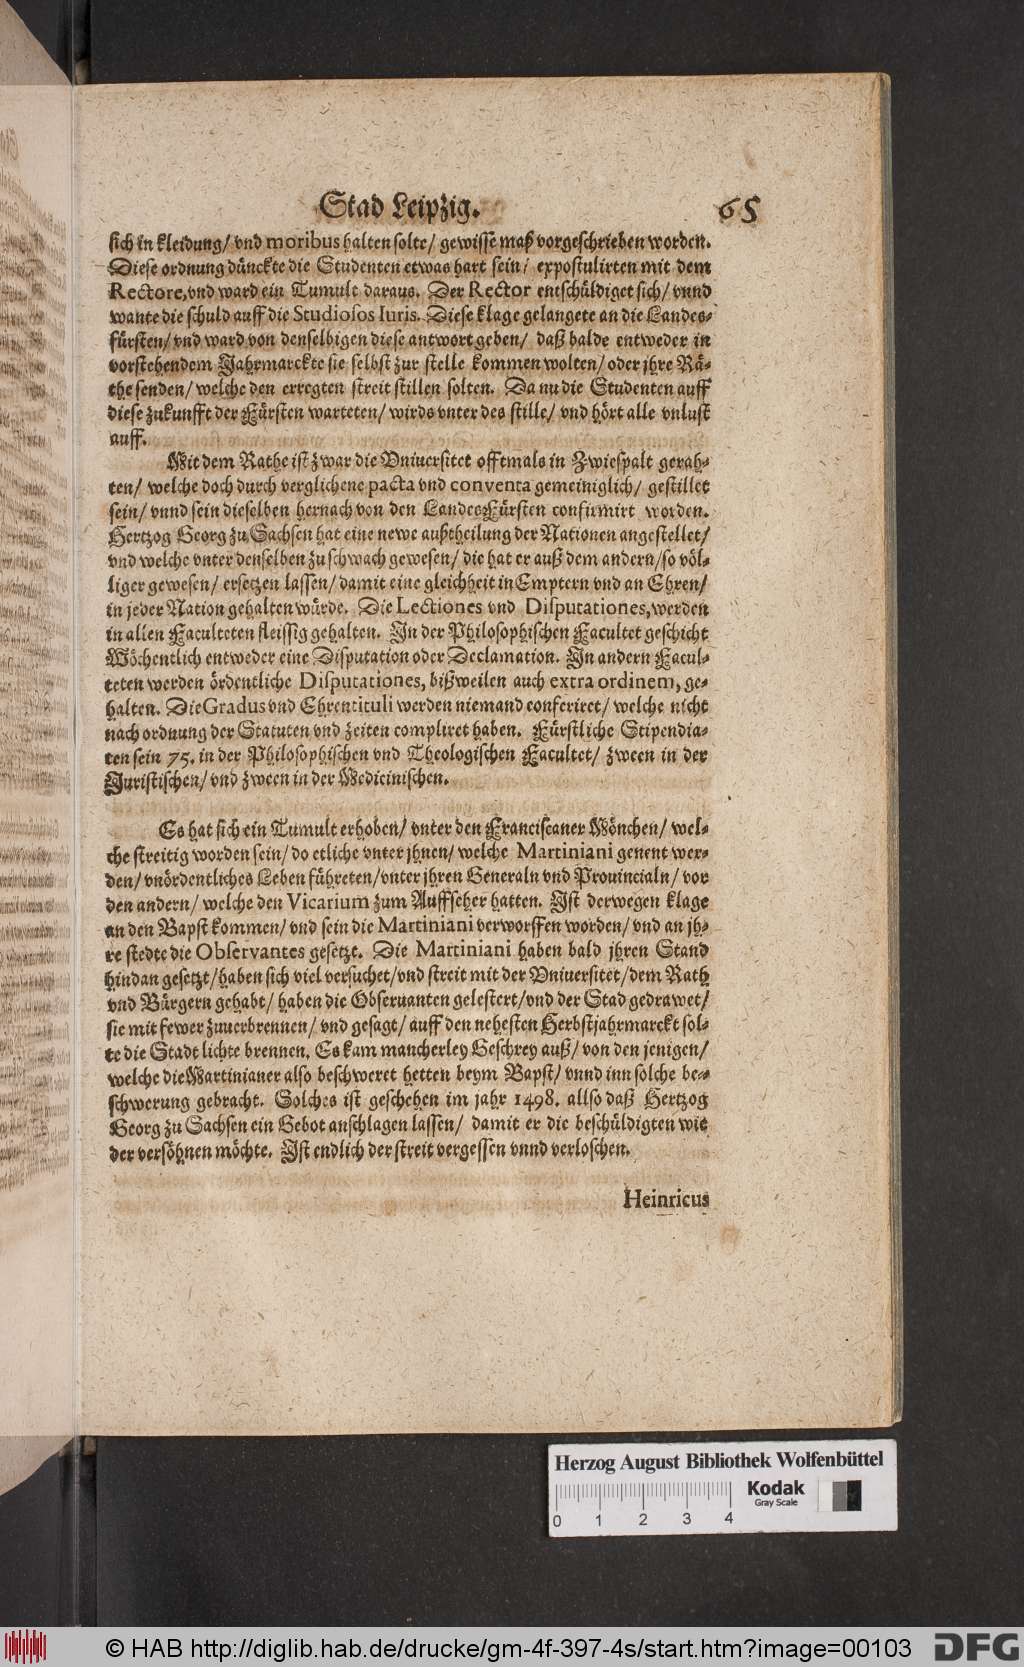 Stad Leipzig. 65
sich in kleidung/ vnd moribus halten solte/ gewisse maß vorgeschrieben worden.
Diese ordnung dünckte die Studenten etwas hart sein/ expostulirten mit dem
Rectore, vnd ward ein Tumult daraus. Der Rector entschüldiget sich/ vnnd
wante die schuld auff die Studiosos Iuris. Diese klage gelangete an die Landes-
fürsten/ vnd ward von denselbigen diese antwort geben/ daß balde entweder in
vorstehendem Jahrmarckte sie selbst zur stelle kommen wolten/ oder jhre Rä-
the senden/ welche den erregten streit stillen solten. Da nu die Studenten auff
diese zukunfft der Fürsten warteten/ wirds vnter des stille/ vnd hört alle vnlust
auff.
Mit dem Rathe ist zwar die Vniuersitet offtmals in Zwiespalt gerah-
ten/ welche doch durch verglichene pacta vnd conventa gemeiniglich/ gestillet
sein/ vnnd sein dieselben hernach von den LandesFürsten confirmirt worden.
Hertzog Georg zu Sachsen hat eine newe außtheilung der Nationen angestellet/
vnd welche vnter denselben zu schwach gewesen/ die hat er auß dem andern/ so völ-
liger gewesen/ ersetzen lassen/ damit eine gleichheit in Emptern vnd an Ehren/
in jeder Nation gehalten würde. Die Lectiones vnd Disputationes, werden
in allen Faculteten fleissig gehalten. In der Philosophischen Facultet geschicht
Wöchentlich entweder eine Disputation oder Declamation. In andern Facul-
teten werden ördentliche Disputationes, bißweilen auch extra ordinem, ge-
halten. Die Gradus vnd Ehrentituli werden niemand conferiret/ welche nicht
nach ordnung der Statuten vnd zeiten compliret haben. Fürstliche Stipendia-
ten sein 75. in der Philosophischen vnd Theologischen Facultet/ zween in der
Juristischen/ vnd zween in der Medicinischen.
Es hat sich ein Tumult erhoben/ vnter den Franciscaner Mönchen/ wel-
che streitig worden sein/ do etliche vnter jhnen/ welche Martiniani genent wer-
den/ vnördentliches Leben führeten/ vnter jhren Generaln vnd Prouincialn/ vor
den andern/ welche den Vicarium zum Auffseher hatten. Ist derwegen klage
an den Bapst kommen/ vnd sein die Martiniani verworffen worden/ vnd an jh-
re stedte die Observantes gesetzt. Die Martiniani haben bald jhren Stand
hindan gesetzt/ haben sich viel versuchet/ vnd streit mit der Vniuersitet/ dem Rath
vnd Bürgern gehabt/ haben die Obseruanten gelestert/ vnd der Stad gedrawet/
sie mit fewer zuuerbrennen/ vnd gesagt/ auff den nehesten Herbstjahrmarckt sol-
te die Stadt lichte brennen. Es kam mancherley Geschrey auß/ von den jenigen/
welche die Martinianer also beschweret hetten beym Bapst/ vnnd inn solche be-
schwerung gebracht. Solches ist geschehen im jahr 1498. allso daß Hertzog
Georg zu Sachsen ein Gebot anschlagen lassen/ damit er die beschüldigten wie
der versöhnen möchte. Ist endlich der streit vergessen vnnd verloschen.
Heinricus
Herzog August Bibliothek Wolfenbüttel
Kodak
Gray Scale
0 1 2 3 4
© HAB http://diglib.hab.de/drucke/gm-4f-397-4s/start.htm?image=00103
DFG